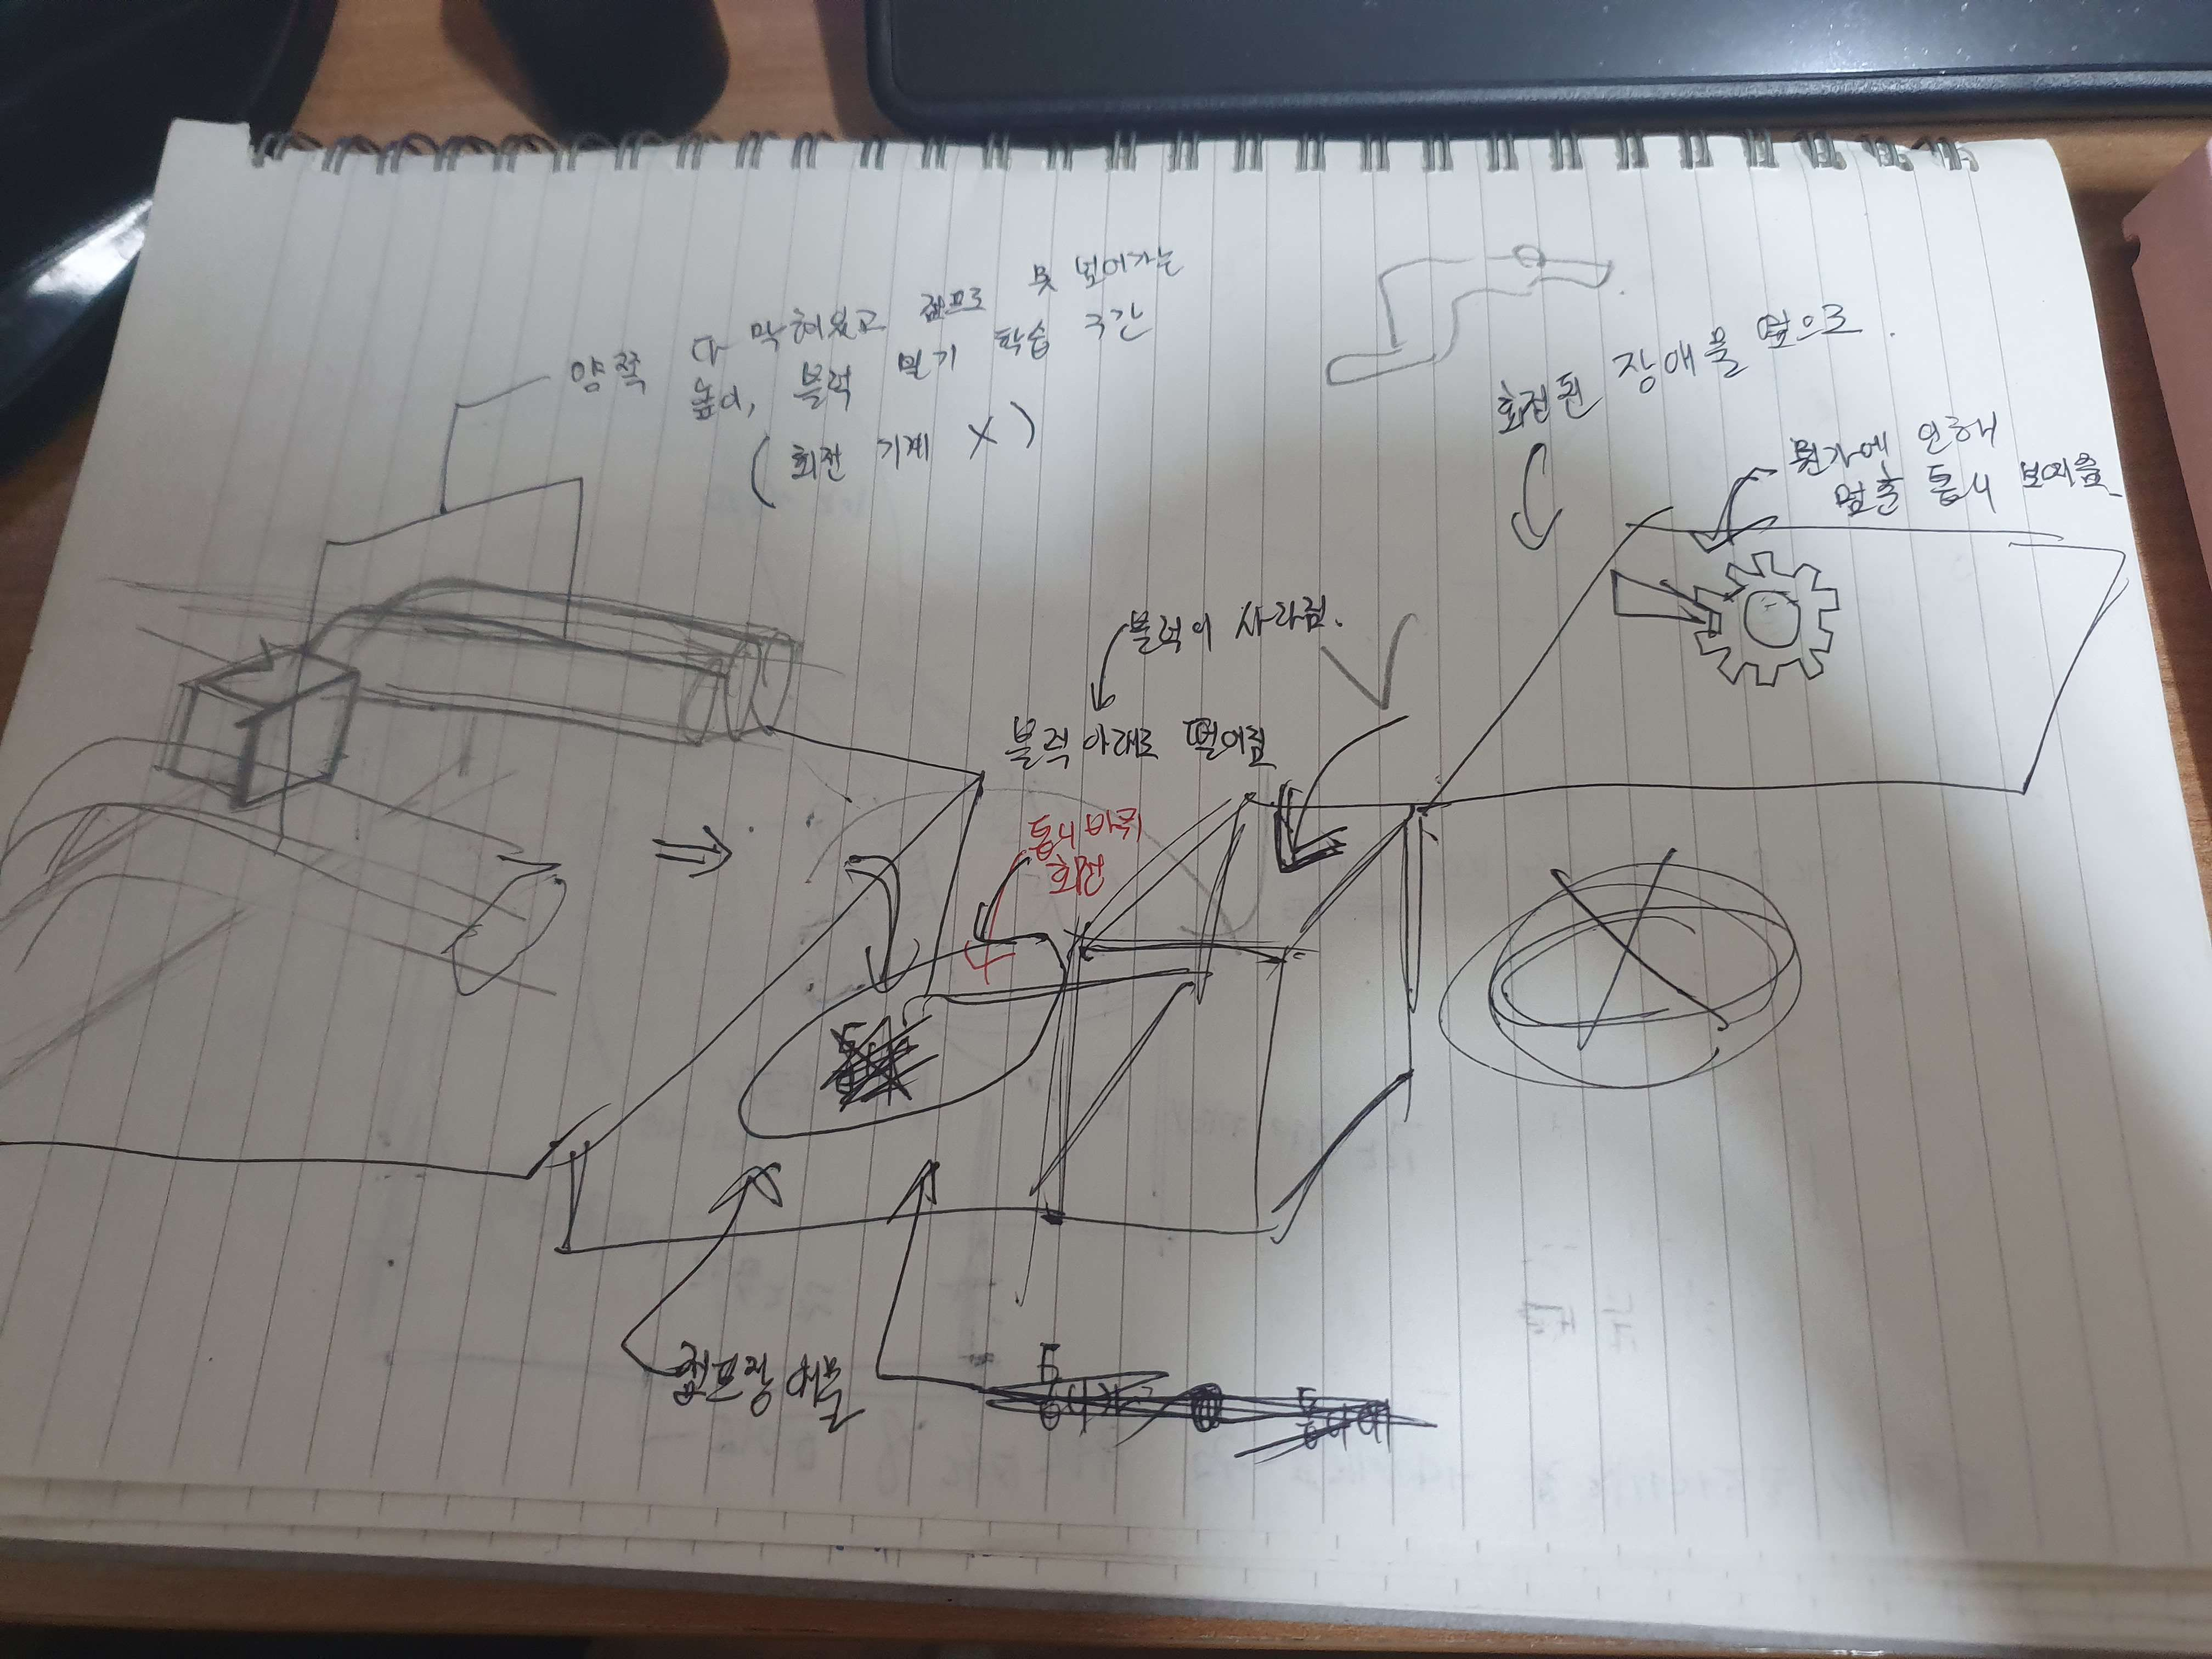 양쪽 다 막혀있고 점프로 못 넘어가는
높이, 블럭 밀기 학습 구간
(회전 기계 X)
회전된 장애물 앞으로.
뭔가에 인해
멈춘 톱니 보여줌
블럭이 사라짐.
블럭 아래로 떨어짐
톱니바퀴
회전
점프장애물